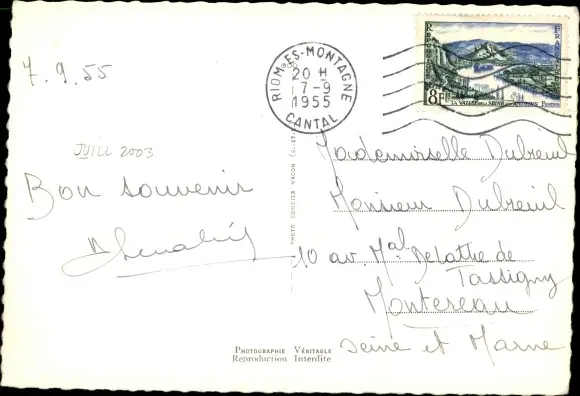 7.9.55
JUILL 2003
Bon souvenir
RIOM-ES-MONTAGNE
20 H
7-9
1955
CANTAL
8F
LA VALLÉE DE LA SEINE
Mademoiselle Dubreuil
Monsieur Dubreuil
10 av. Mal Delattre de
Tassigny
Montereau
Seine et Marne
PHOTO COMBIER MACON
PHOTOGRAPHIE VÉRITABLE
Reproduction Interdite